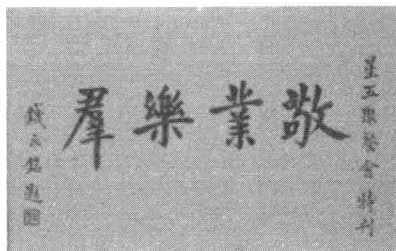 星五聚餐會特刊
敬業樂羣
錢永銘題